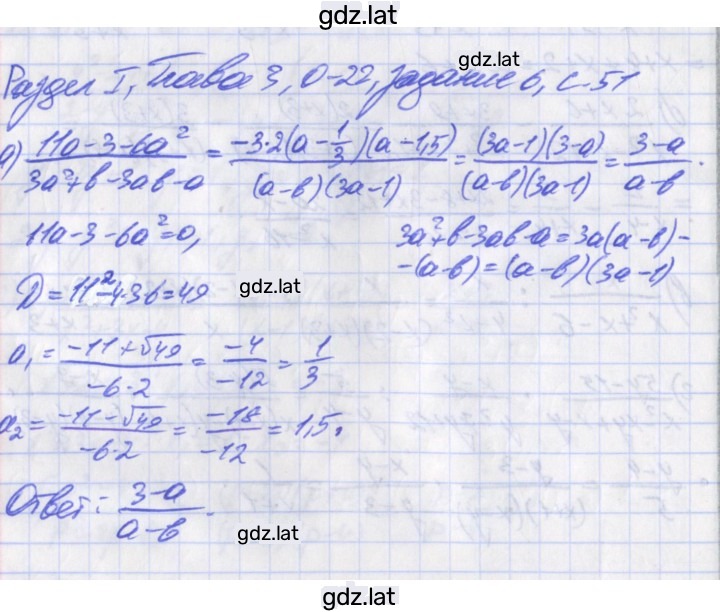 gdz.lat
gdz.lat
Раздел I, Глава 3, О-22, задание 6, с. 51
а) (11a-3-6a²)/(3a²+b-3ab-a) = (-3·2(a-1/3)(a-1,5))/((a-b)(3a-1)) = ((3a-1)(3-a))/((a-b)(3a-1)) = (3-a)/(a-b).
11a-3-6a²=0,
3a²+b-3ab-a=3a(a-b)-
-(a-b)=(a-b)(3a-1)
D=11²-4·36=49
gdz.lat
a₁ = (-11+√49)/(-6·2) = (-4)/(-12) = 1/3
a₂ = (-11-√49)/(-6·2) = (-18)/(-12) = 1,5.
Ответ: (3-a)/(a-b).
gdz.lat
gdz.lat